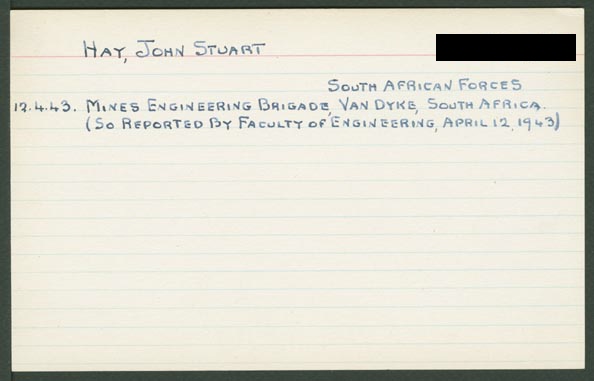 HAY, JOHN STUART
SOUTH AFRICAN FORCES
12.4.43. MINES ENGINEERING BRIGADE, VAN DYKE, SOUTH AFRICA.
(SO REPORTED BY FACULTY OF ENGINEERING, APRIL 12, 1943)